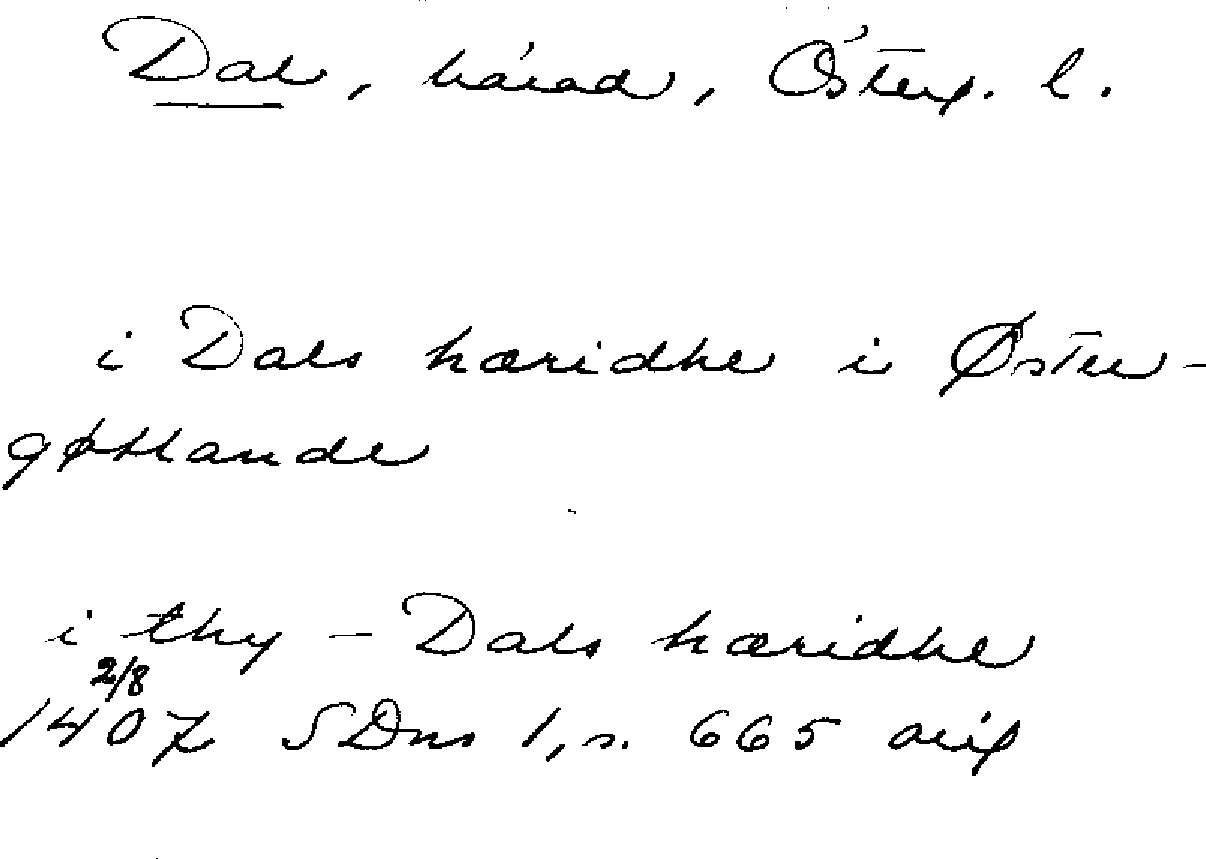 Dal, härad, Österg. l.
i Dals hæridhe i Øster-
gøtlande
i thy - Dals hæridhe
2/8
1407 SDns 1, s. 665 orig